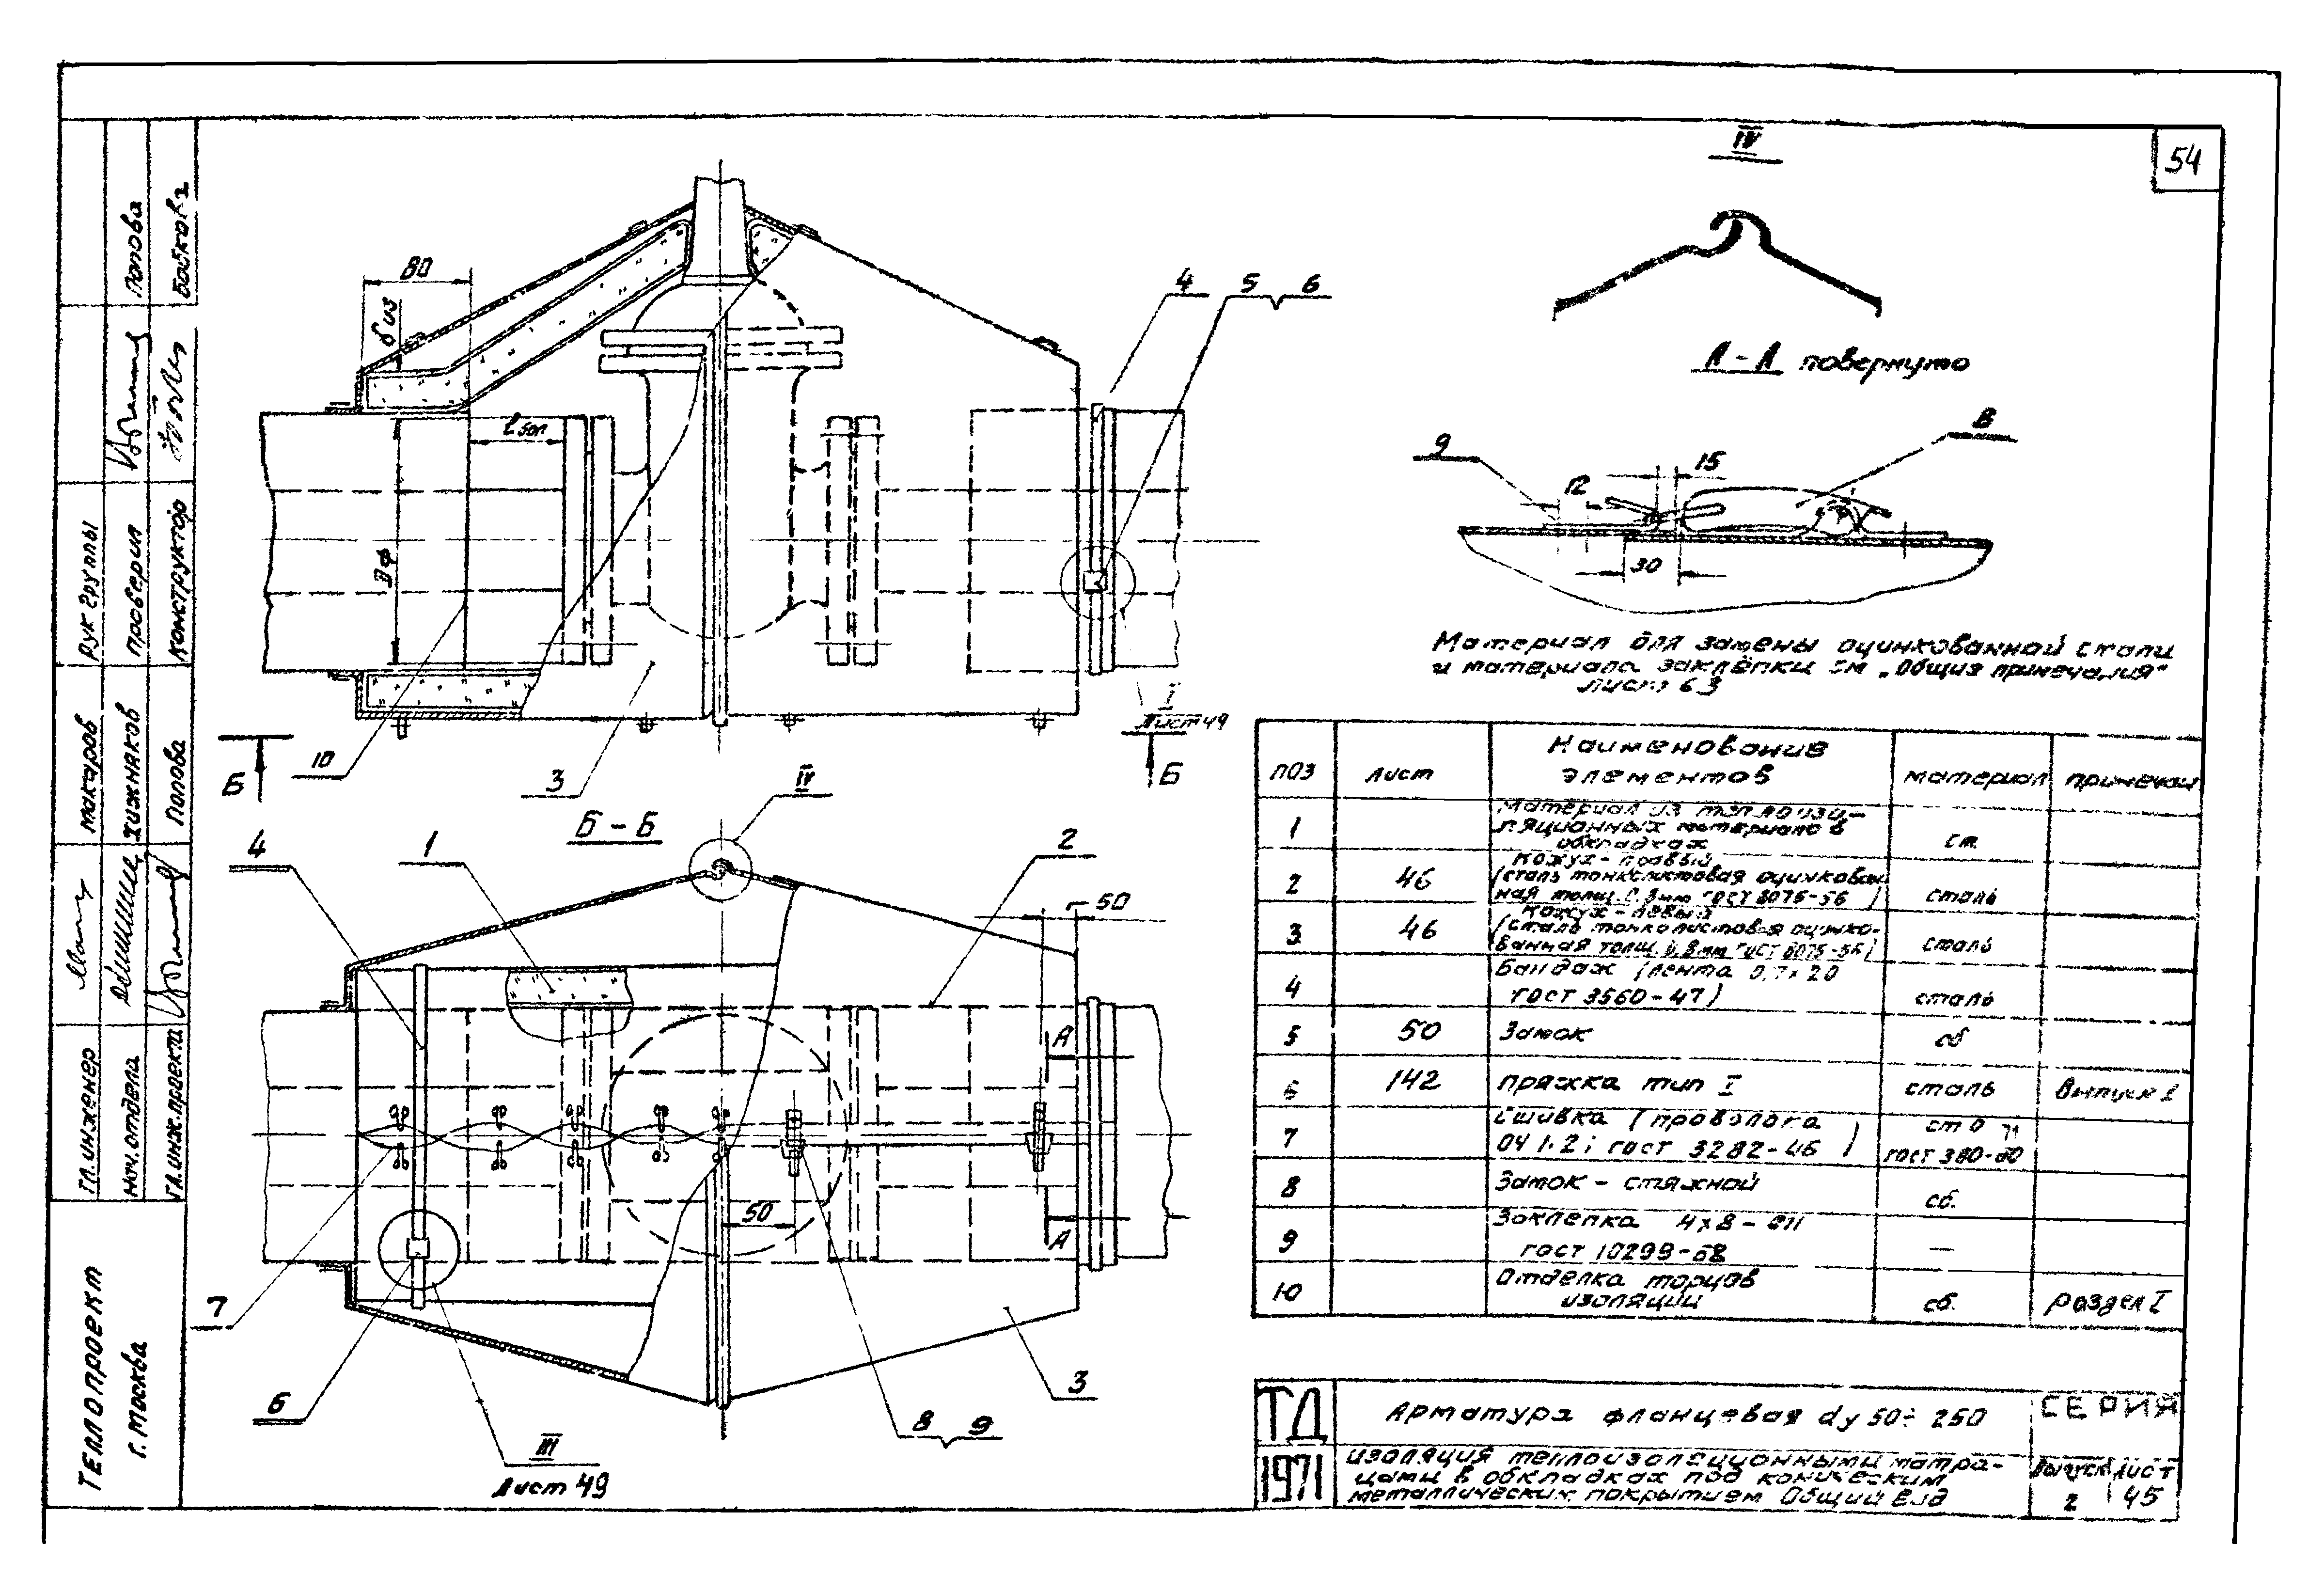 54
IV
80
δ из
ℓ бол
Dф
4
5 6
I
Лист 49
Б
10
3
Б
А-А повернуто
9
8
15
12
30
Материал для замены оцинкованной стали
и материала заклёпки см „Общия примечания"
лист 63
Б-Б
IV
4
1
2
50
А
50
А
7
6
III
Лист 49
8 9
3
поз лист Наименования элементов материал примечан
1 Материал из теплоизо-
ляционных материалов в
обкладках ст.
2 46 Кожух-правый
(сталь тонколистовая оцинкован
ная толщ. 0,8мм гост 8075-56) сталь
3 46 Кожух-левый
(сталь тонколистовая оцинко-
ванная толщ. 0,8мм гост 8075-56) сталь
4 Бандаж (лента 0,7х20
гост 3560-47) сталь
5 50 Замок сб
6 142 пряжка тип I сталь выпуск 1
7 Сшивка (проволока
ОЧ 1.2; гост 3282-46) ст 0
гост 380-60 71
8 Замок - стяжной сб.
9 Заклепка 4х8-
гост 10299-68 —
10 Отделка торцов
изоляции сб. раздел I
ТД Арматура фланцевая dу 50÷250 СЕРИЯ
1971 изоляция теплоизоляционными матра-
цами в обкладках под коническим
металлических покрытием Общий вид
выпуск лист
2 45
Попова
Бойков
Рук группы
проверил
Конструктор
Макаров
Хижняков
Попова
гл.инженер
нач.отдела
гл.инж.проекта
Теплопроект
г. Москва